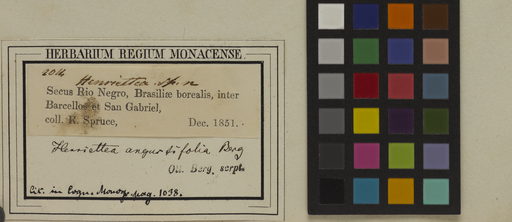 HERBARIUM REGIUM MONACENSE
204
Henriettea sp. n
Secus Rio Negro, Brasiliæ borealis, inter
Barcellos et San Gabriel,
coll. R. Spruce, Dec. 1851.
Henriettea angustifolia Berg
Ott. Berg. scrpt.
Cit. in Cogn. Monogr. pag. 1038.